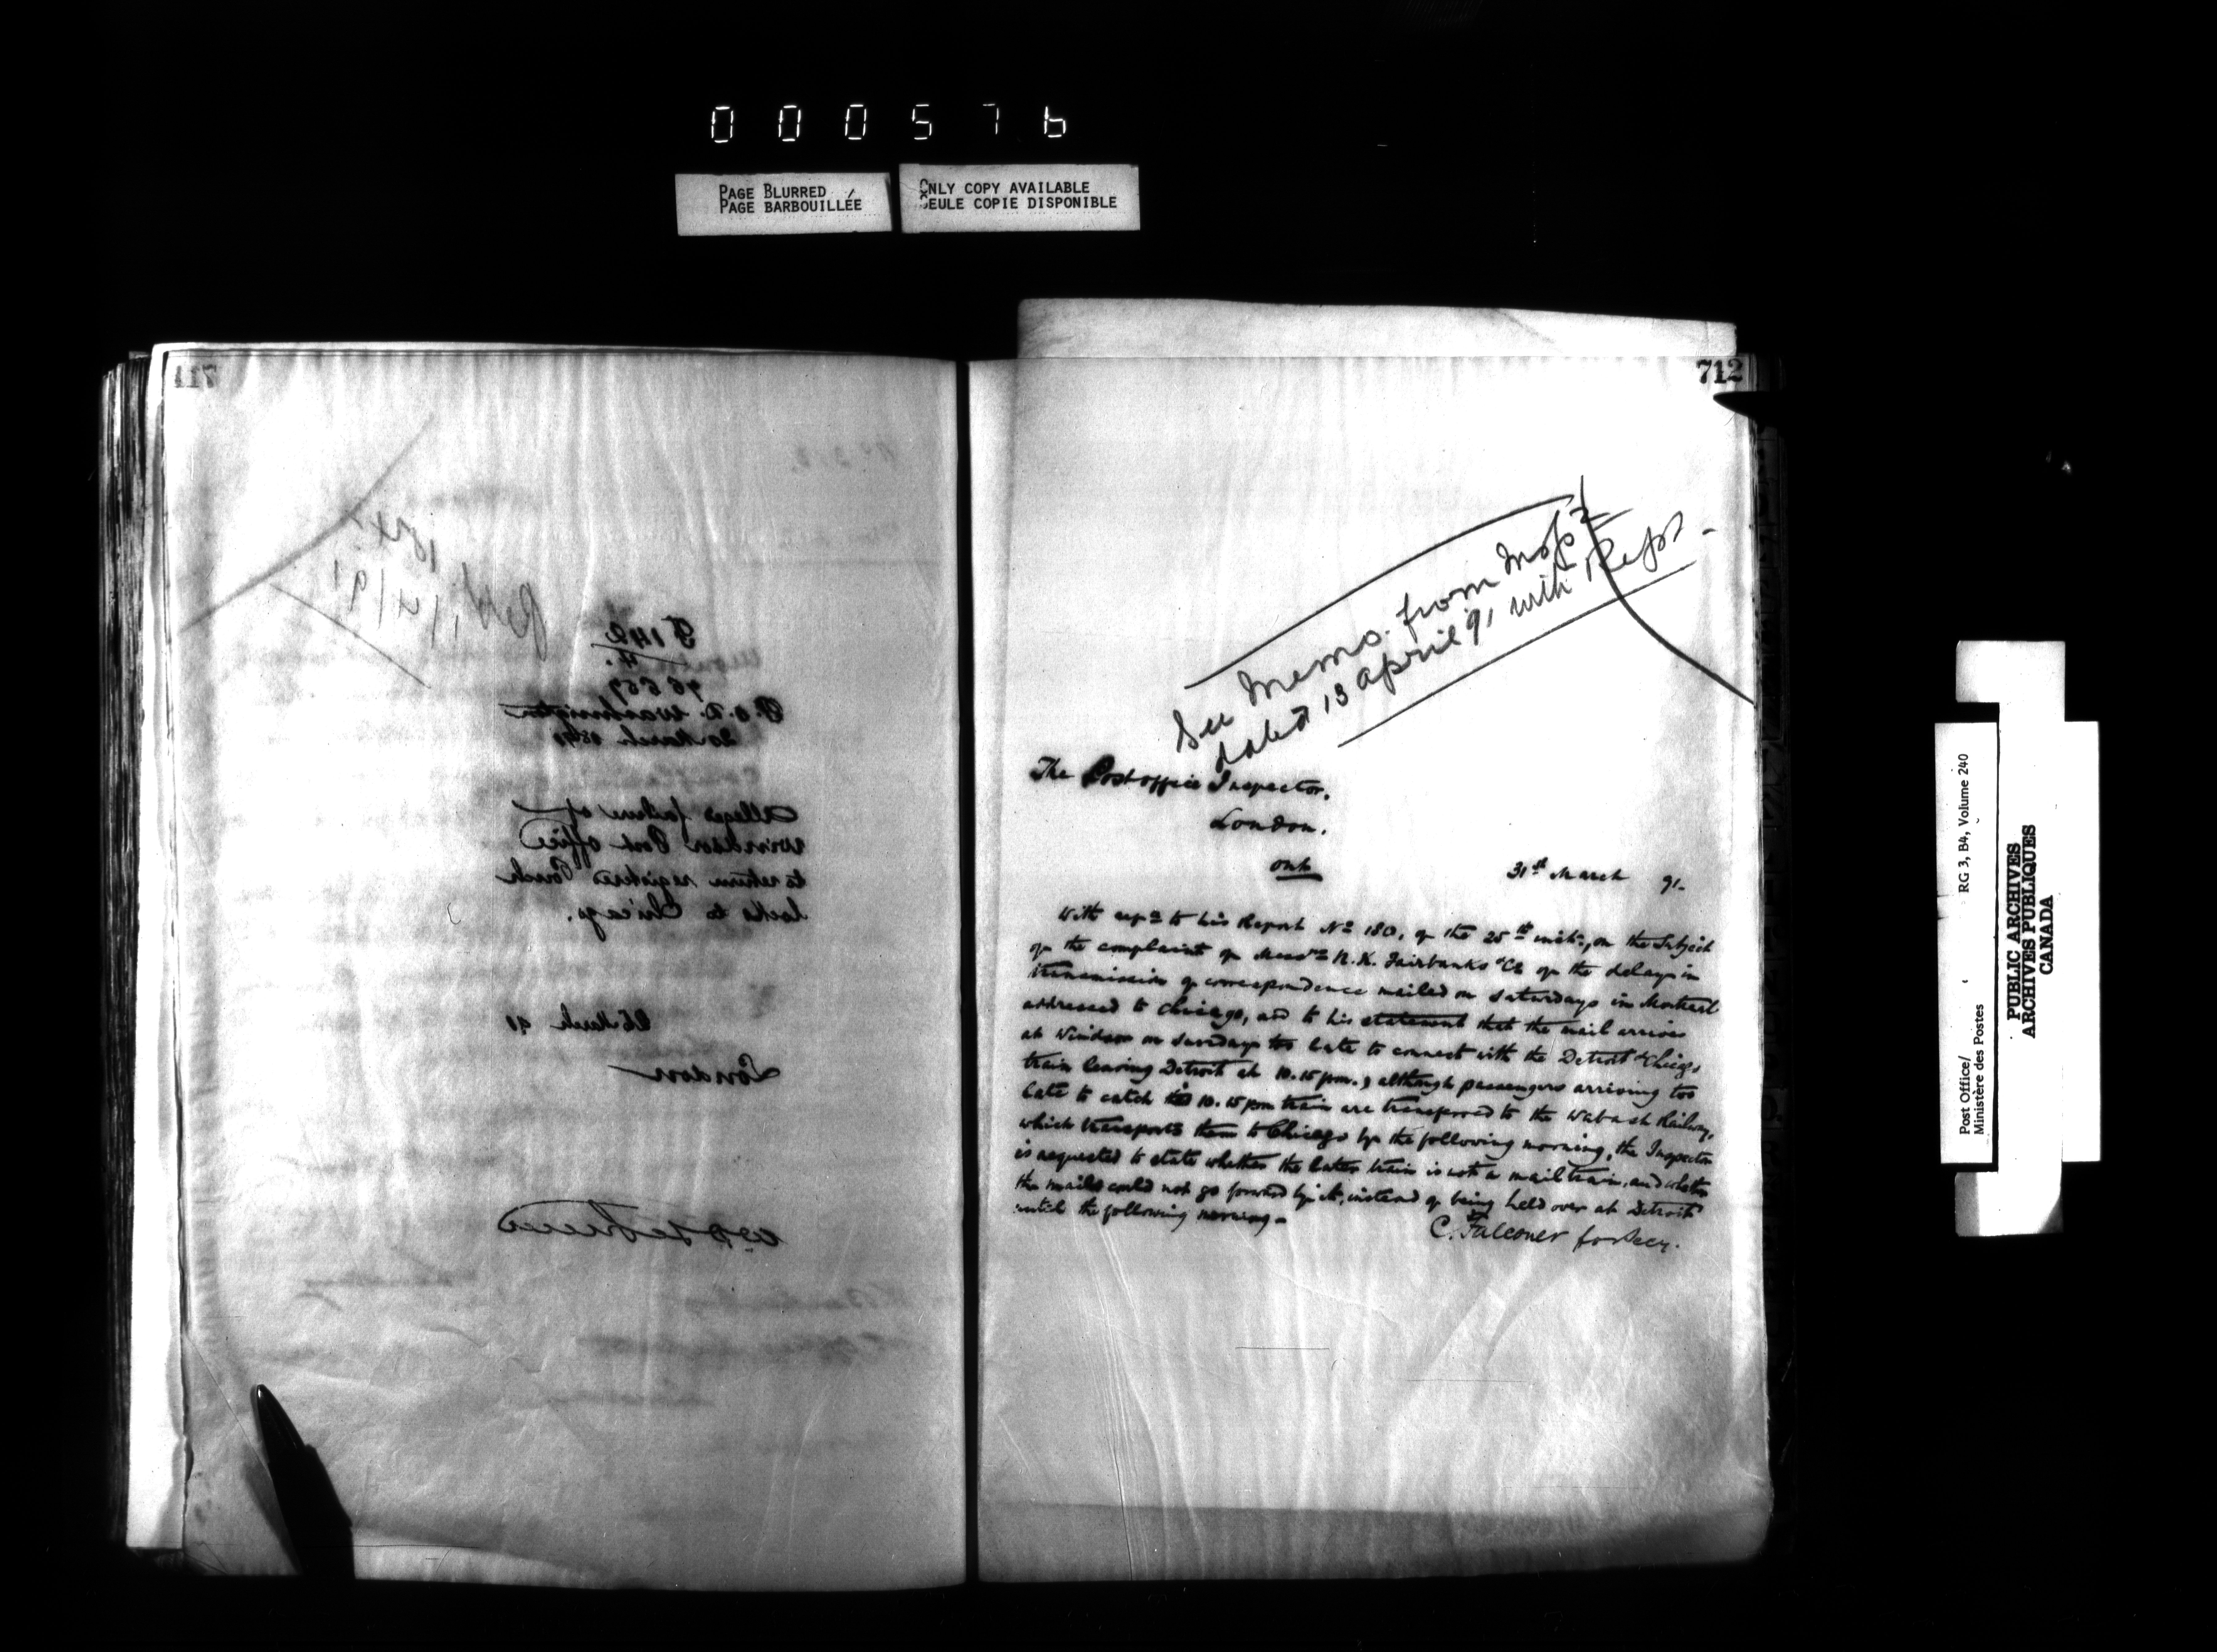 000576
PAGE BLURRED
PAGE BARBOUILLÉE
ONLY COPY AVAILABLE
SEULE COPIE DISPONIBLE
711
Retd 1/4/91
F 142
4.
96669
P.O.D. Washington
20 March 1891
Alleged failure of
Windsor Post Office
to return registered Pouch
locks to Chicago.
26 March 91
London
712
See Memo. from Insp
dated 13 April 91 with Rept -
The Post office Inspector,
London,
Ont
31st March 91-
With to his Report No 180, of the 25th inst:, on the Subject
of the complaint of Messrs N.K. Fairbanks & Co of the delays in
transmission of correspondence mailed on Saturdays in Montreal
addressed to Chicago, and to his statement that the mail arrives
at Windsor on Sundays too late to connect with the Detroit & Chicago
train leaving Detroit at 10.15 p.m., although passengers arriving too
late to catch the 10.15 pm train are transferred to the Wabash Railway,
which transports them to Chicago by the following morning, the Inspector
is requested to state whether the later train is not a mail train, and whether
the mails could not go forward by it, instead of being held over at Detroit
until the following morning.
C. Falconer for Secy.
Post Office/ RG 3, B4, Volume 240
Ministère des Postes
PUBLIC ARCHIVES
ARCHIVES PUBLIQUES
CANADA